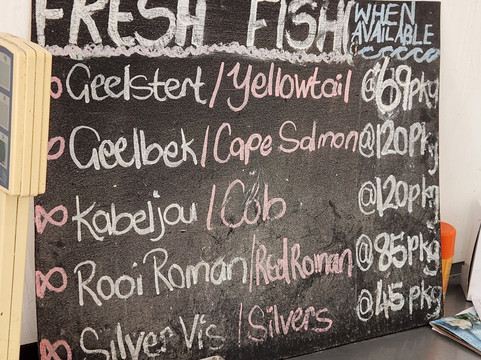 FRESH FISH WHEN AVAILABLE
Geelstert/Yellowtail @69pkg
Geelbek/Cape Salmon @120pkg
Kabeljou/Cob @120pkg
Rooi Roman/Red Roman @85pkg
Silver Vis/Silvers @45pkg